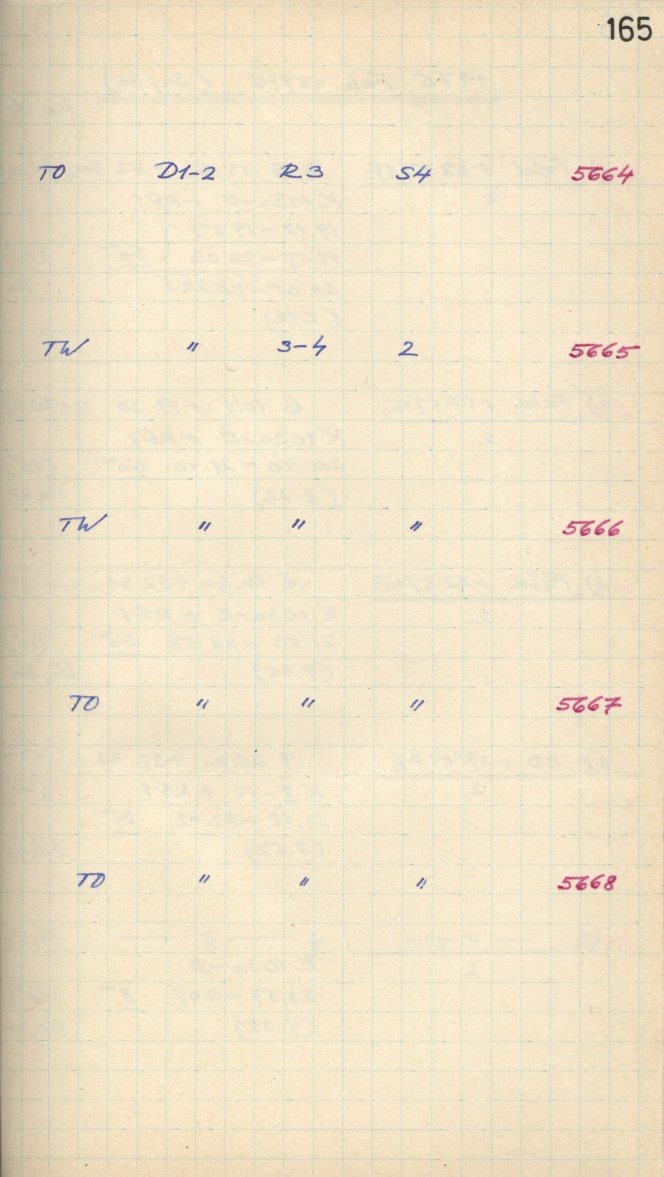 165
TO D1-2 R3 S4 5664
TW " 3-4 2 5665
TW " " " 5666
TO " " " 5667
TO " " " 5668